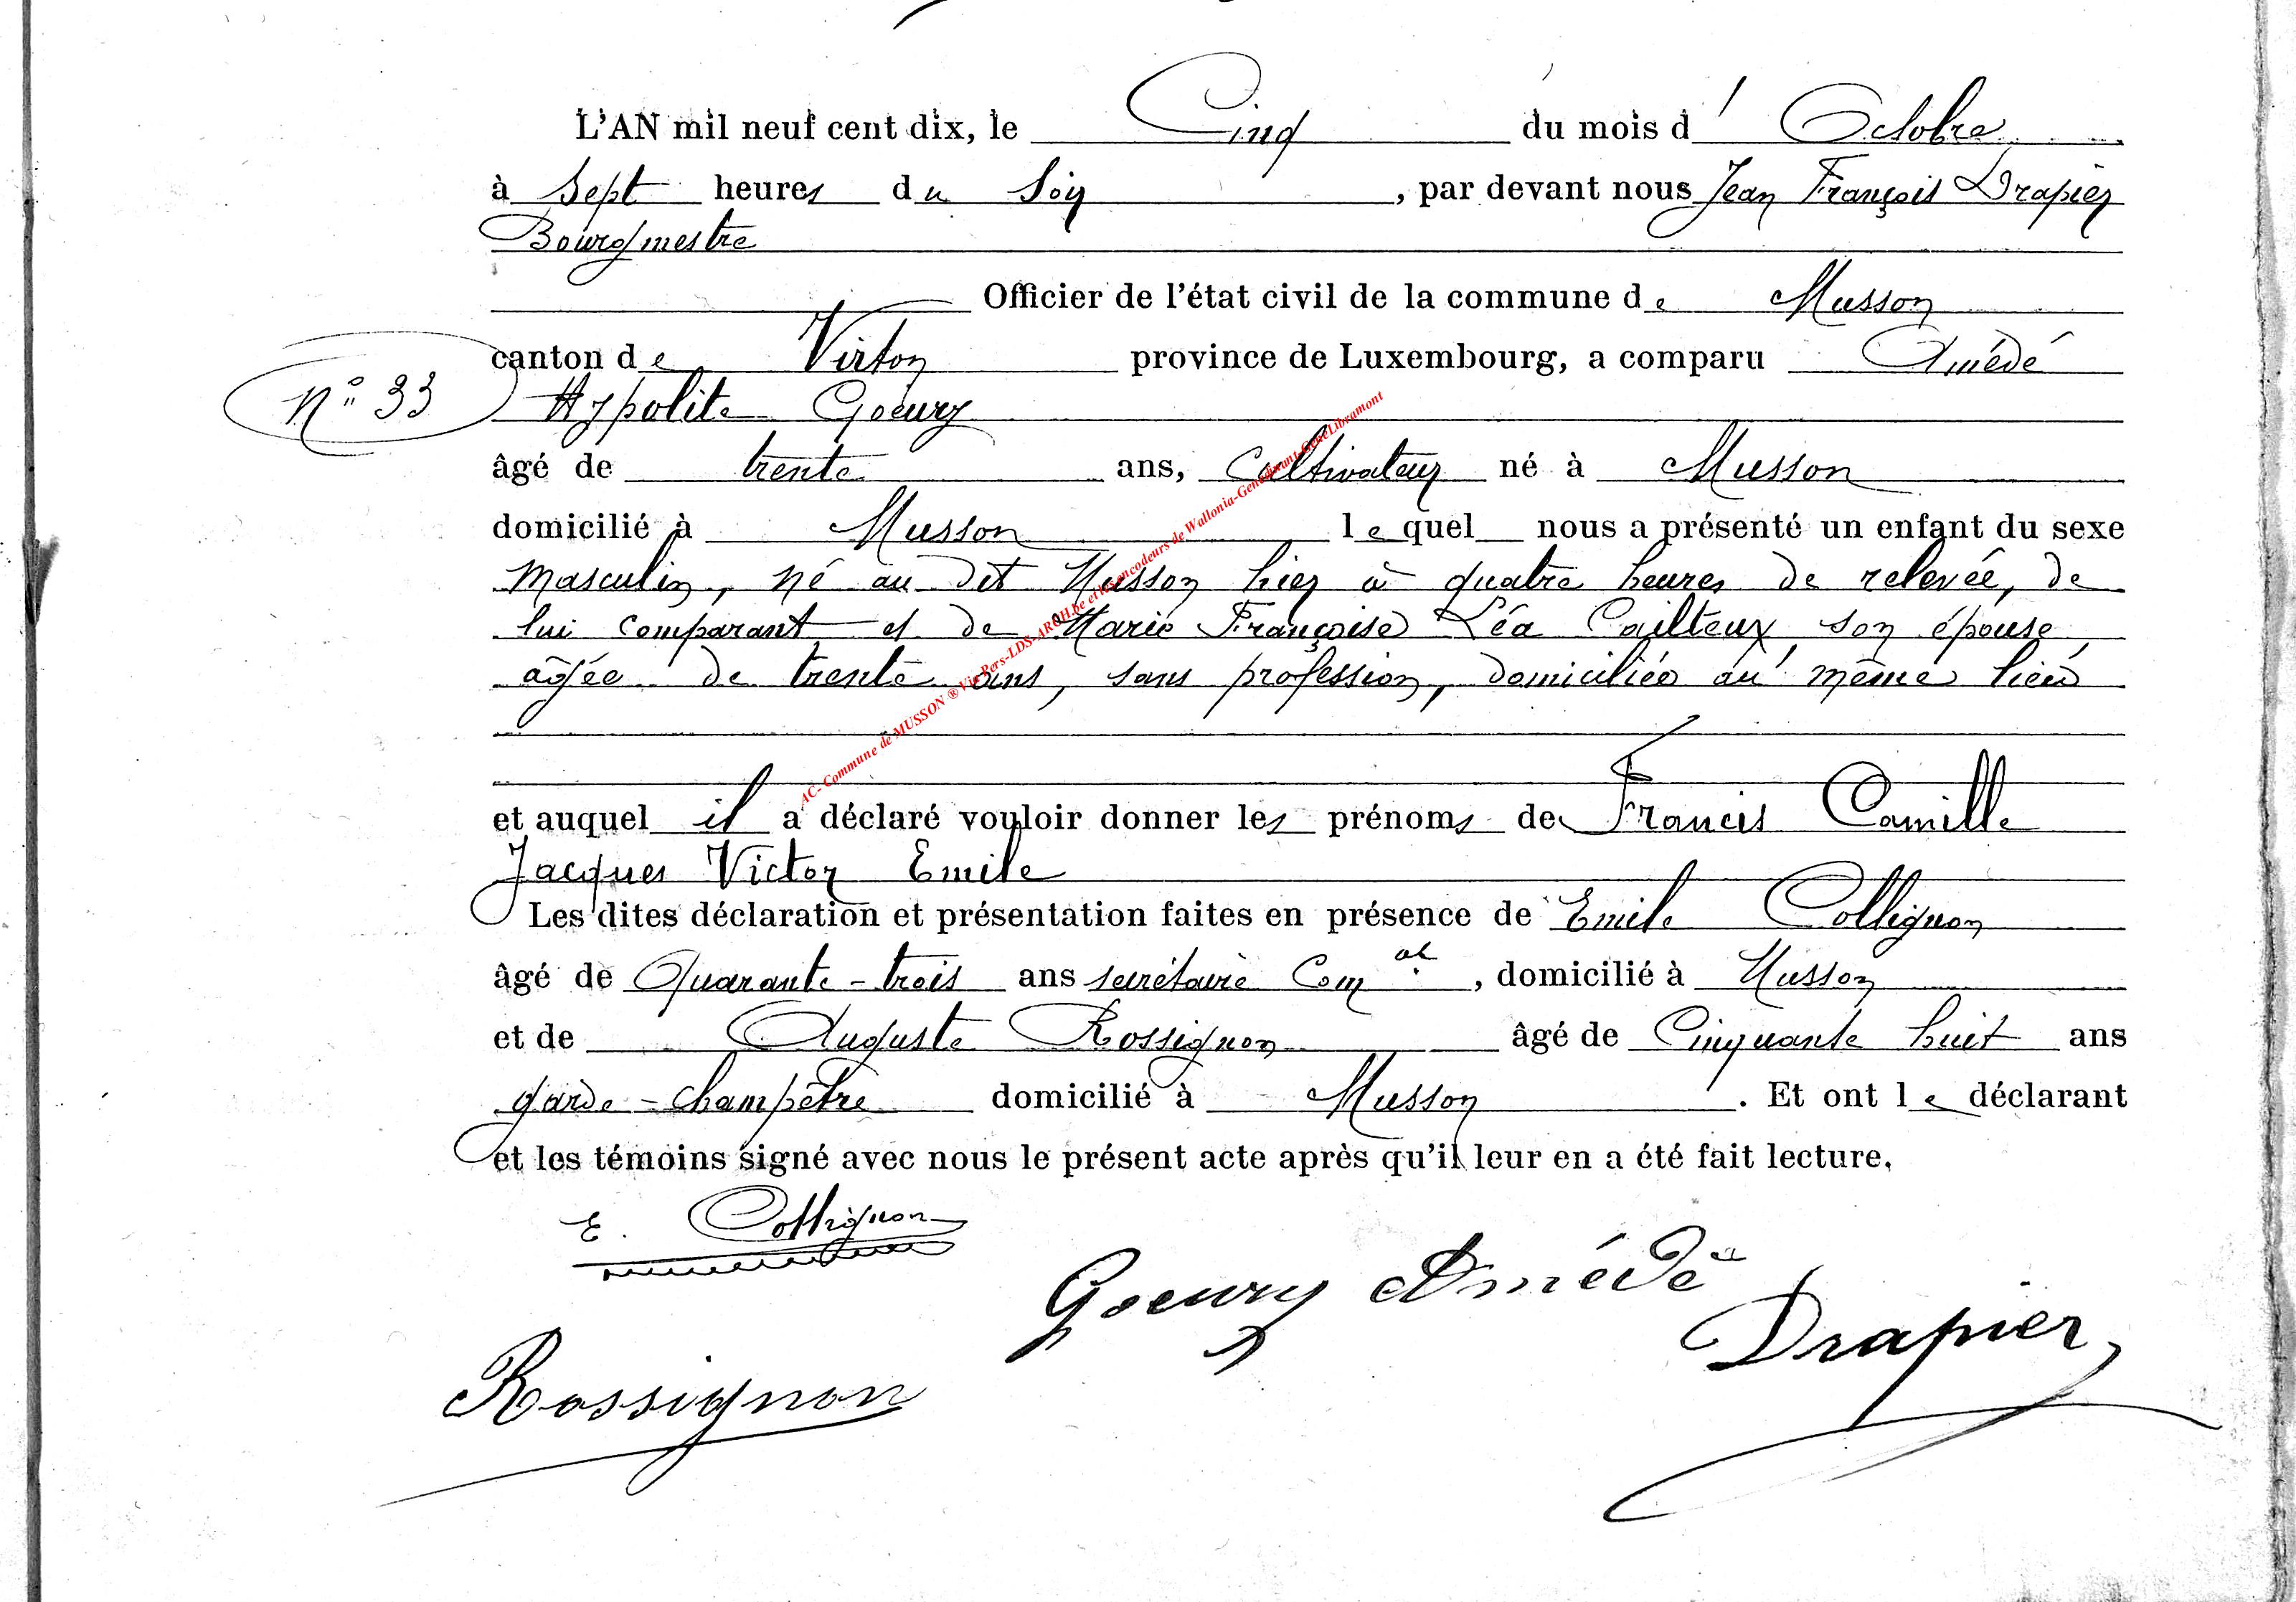 L'AN mil neuf cent dix, le Cinq du mois d'Octobre
à Sept heures du Soir, par devant nous Jean François Drapier
Bourgmestre
Officier de l'état civil de la commune de Musson
canton de Virton province de Luxembourg, a comparu Amédé
N° 33
Hypolite Goeury
âgé de trente ans, Cultivateur né à Musson
domicilié à Musson lequel nous a présenté un enfant du sexe
Masculin, né au dit Musson hier à quatre heures de relevée, de
lui comparant et de Marie Françoise Léa Cailteux son épouse
âgée de trente ans, sans profession, domiciliée au même lieu
AC- Commune de MUSSON ® Via Pers-LDS-ARCH.be et les encodeurs de Wallonia-Genedinant-GeneLibramont
et auquel il a déclaré vouloir donner les prénoms de Francis Camille
Jacques Victor Emile
Les dites déclaration et présentation faites en présence de Emile Collignon
âgé de Quarante-trois ans secrétaire Com.al, domicilié à Musson
et de Auguste Rossignon âgé de Cinquante huit ans
garde-champêtre domicilié à Musson. Et ont le déclarant
et les témoins signé avec nous le présent acte après qu'il leur en a été fait lecture,
E. Collignon
Goeury Amédé
Drapier
Rossignon